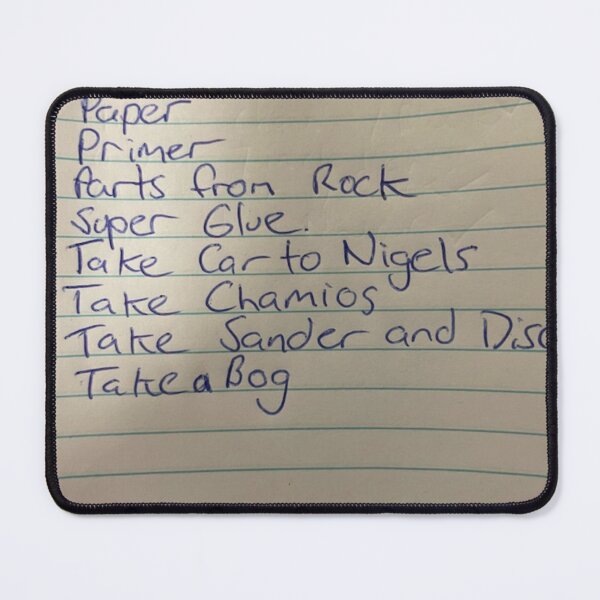 Paper
Primer
Parts from Rock
Super Glue.
Take Car to Nigels
Take Chamios
Take Sander and Disc
Take a Bog